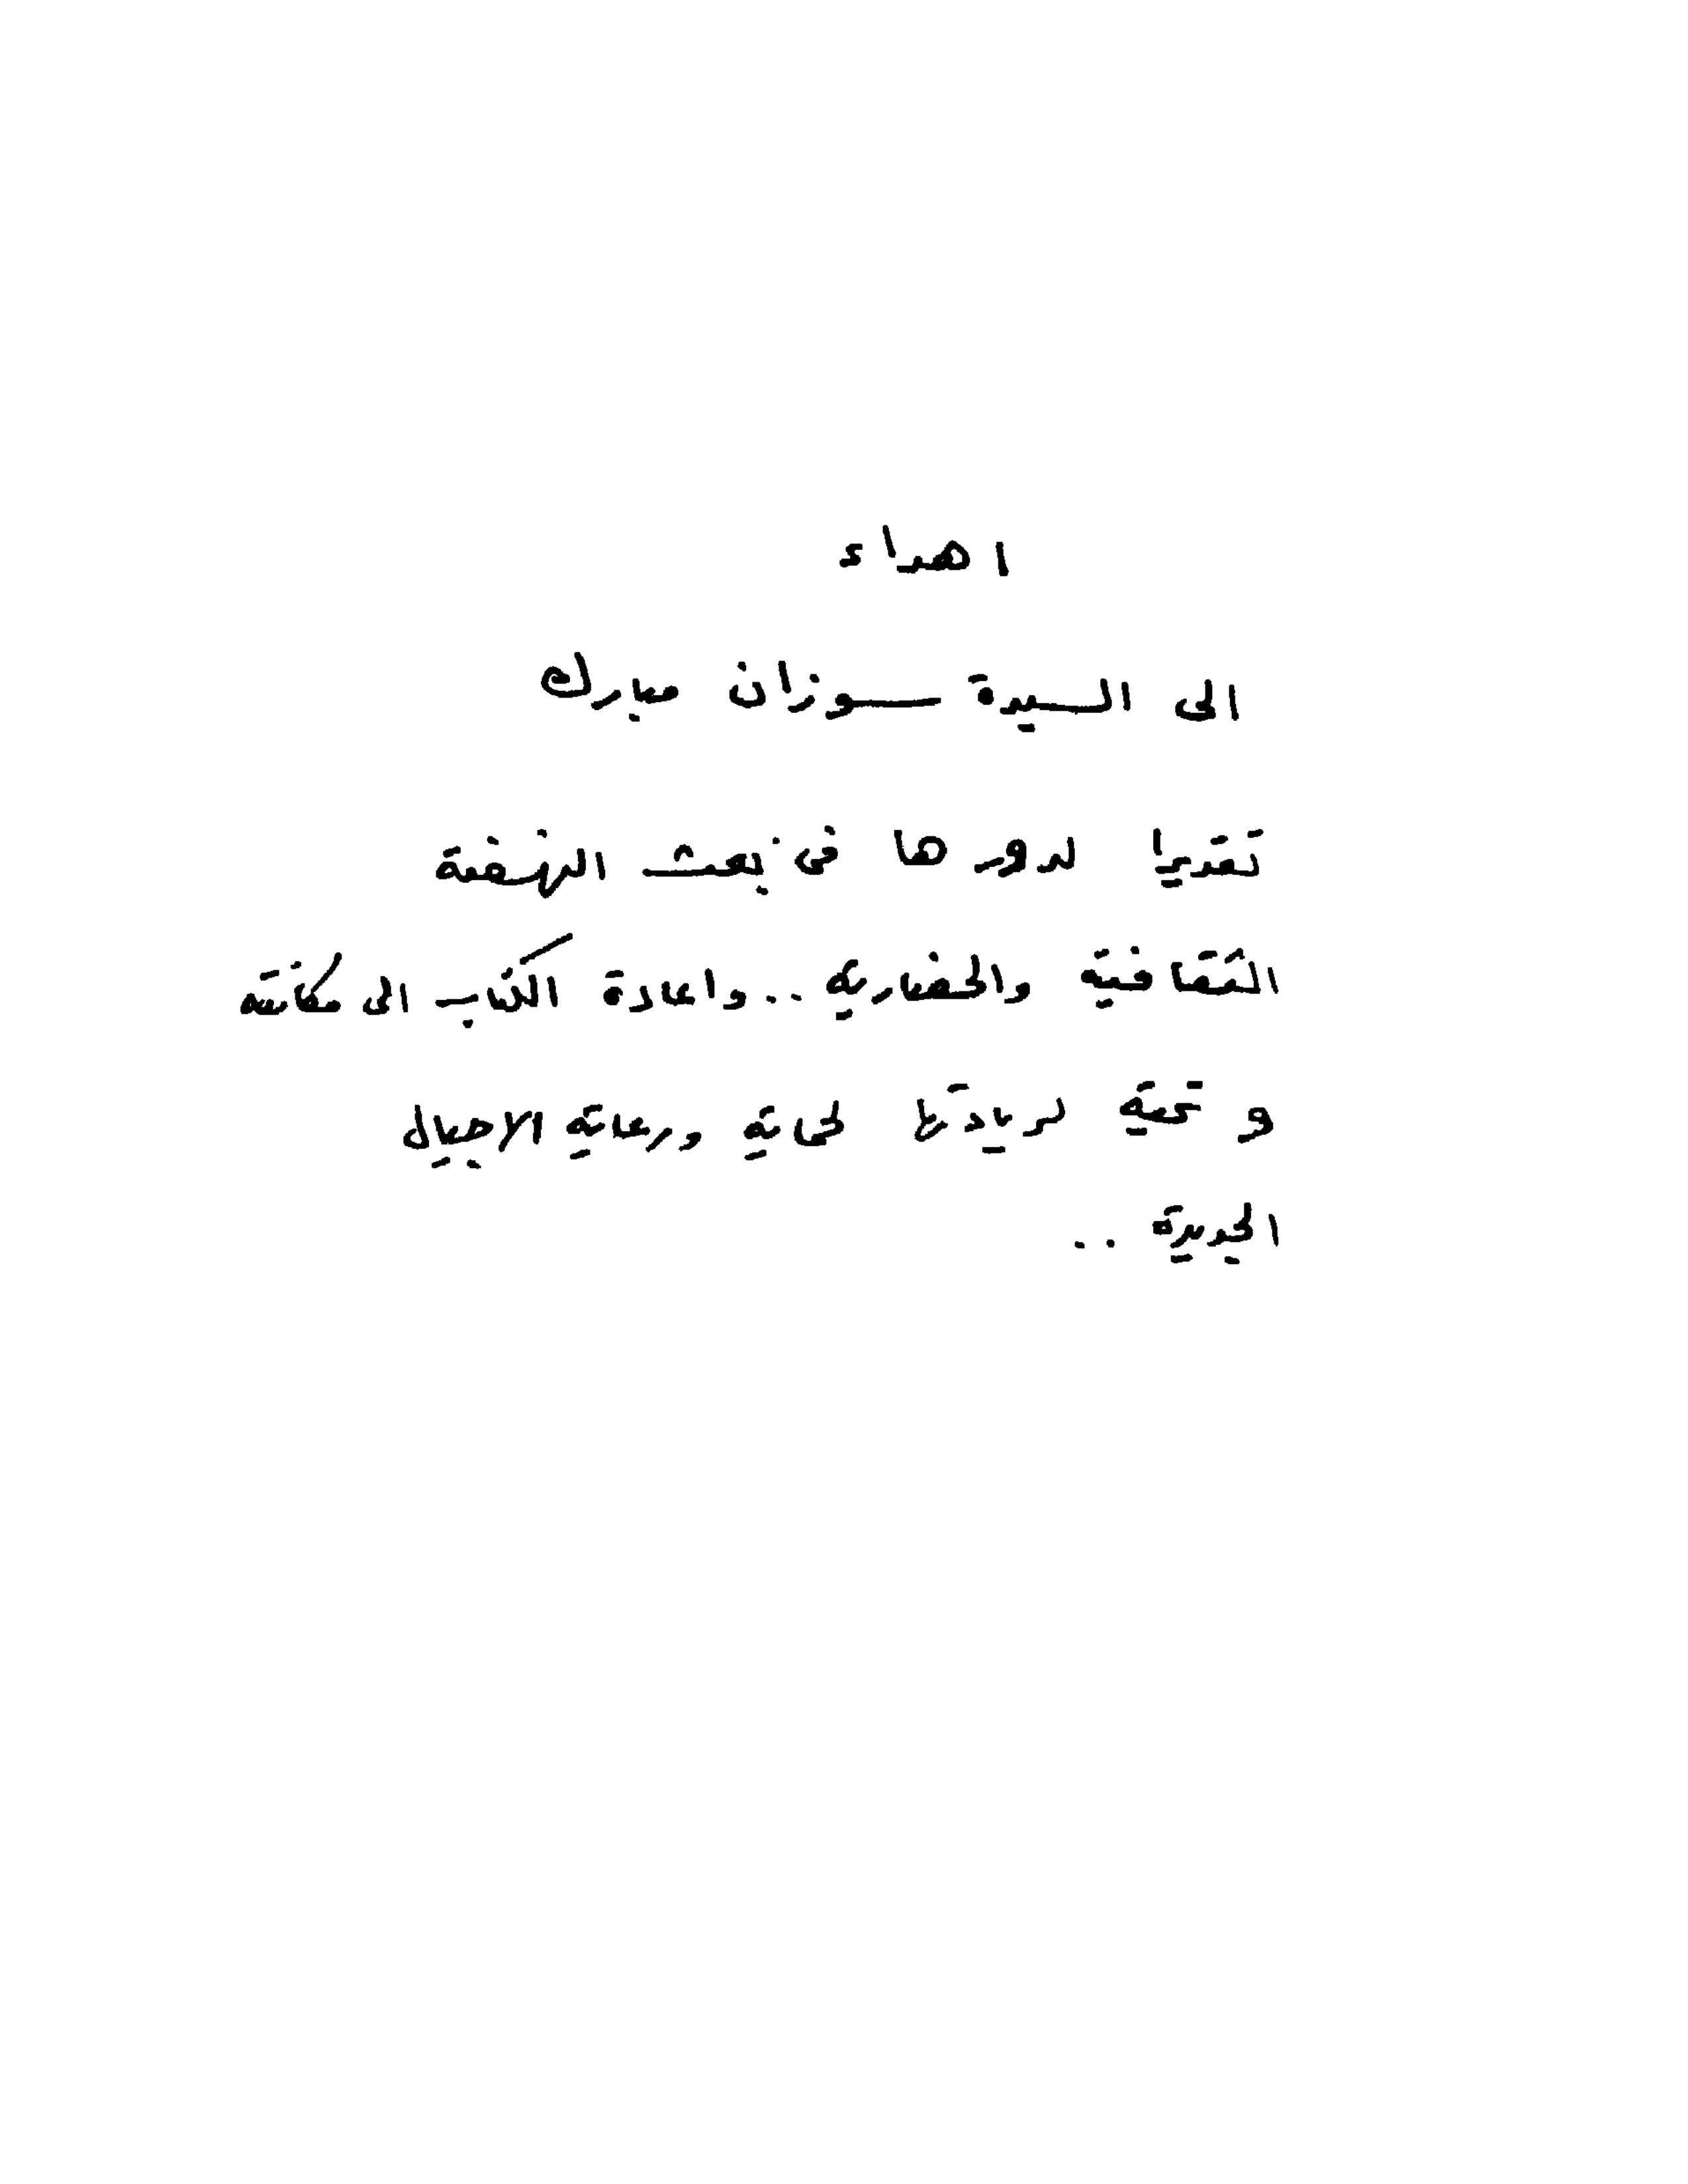 اهداء
الى السيدة سوزان مبارك
تقديرا لدورها فى بعث النهضة
الثقافية والحضارية .. واعادة الكتاب الى مكانته
وتحية لريادتها لحماية ورعاية الاجيال
الجديدة ..